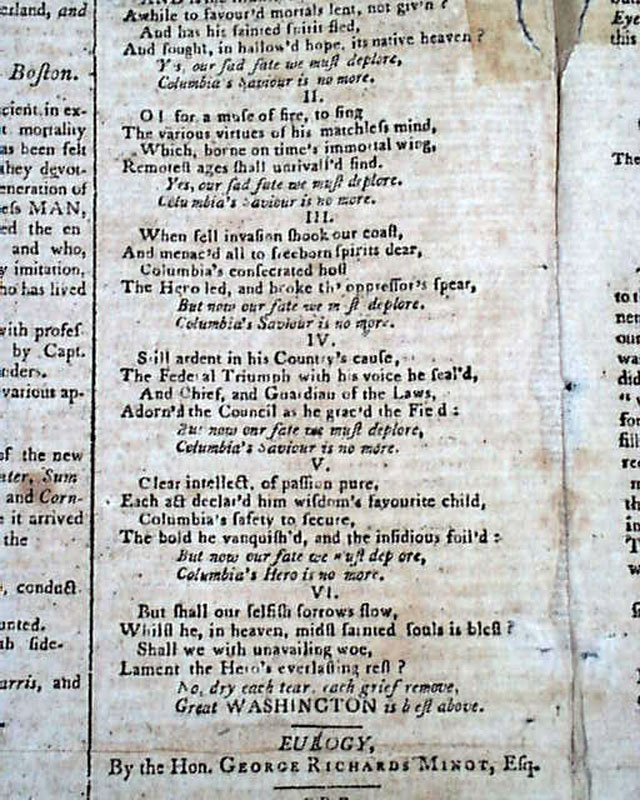 esland, and
Boston.
cient in ex-
t mortality
as been felt
they devot-
eneration of
ess MAN,
ed the en
and who,
y imitation,
ho has lived
with profes
by Capt.
nders.
various ap-
of the new
ater, Sum
and Corn-
e it arrived
the
, conduct
unted.
th side-
arris, and
AND is the
Awhile to favour'd mortals lent, not giv'n ?
And has his sainted spirit fled,
And sought, in hallow'd hope, its native heaven ?
Y s, our sad fate we must deplore,
Columbia's Saviour is no more.
II.
O ! for a muse of fire, to sing
The various virtues of his matchless mind,
Which, borne on time's immortal wing,
Remotest ages shall unrivall'd find.
Yes, our sad fate we must deplore.
Columbia's Saviour is no more.
III.
When fell invasion shook our coast,
And menac'd all to freeborn spirits dear,
Columbia's consecrated host
The Hero led, and broke th' oppressor's spear,
But now our fate we m st deplore.
Columbia's Saviour is no more.
IV.
Still ardent in his Country's cause,
The Federal Triumph with his voice he seal'd,
And Chief, and Guardian of the Laws,
Adorn'd the Council as he grac'd the Field :
But now our fate we must deplore,
Columbia's Saviour is no more.
V.
Clear intellect, of passion pure,
Each act declar'd him wisdom's favourite child,
Columbia's safety to secure,
The bold he vanquish'd, and the insidious foil'd :
But now our fate we must dep ore,
Columbia's Hero is no more.
VI.
But shall our selfish sorrows flow,
Whilst he, in heaven, midst sainted souls is blest ?
Shall we with unavailing woe,
Lament the Hero's everlasting rest ?
No, dry each tear, each grief remove,
Great WASHINGTON is blest above.
EULOGY,
By the Hon. GEORGE RICHARDS MINOT, Esq.
Eye
this
The
to th
nen
our
wa
did
for
fill
re
th
in
w